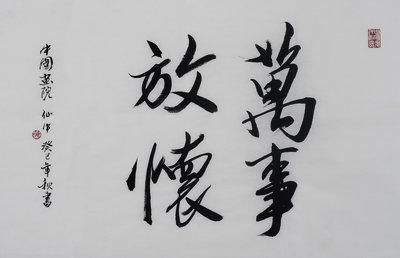 萬事
放懷
中國畫院 仙
癸巳年秋書